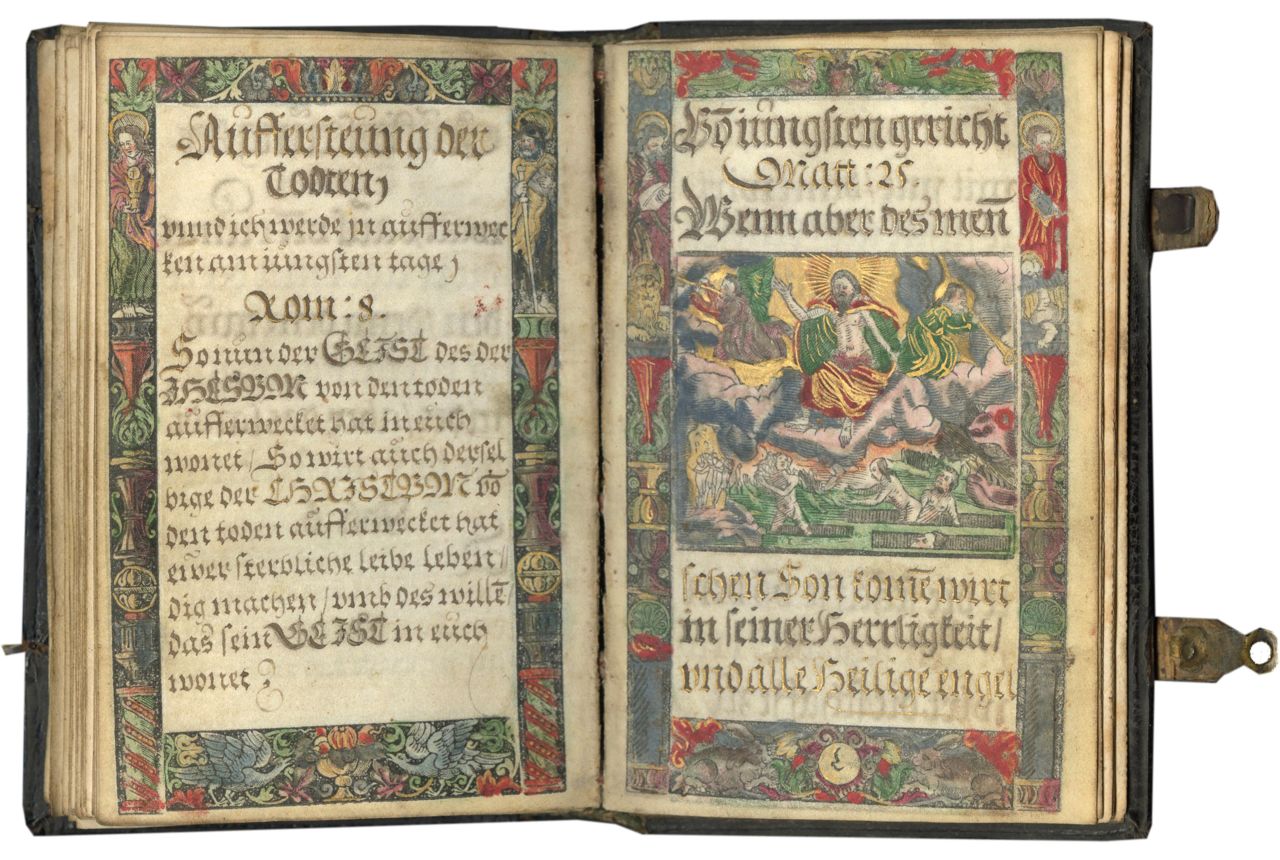 Aůffersteůng der
Todten,
vnnd ich werde jn aůfferwec
ken am iůngsten tage,
Rom: 8.
So nůn der GEIST des der
IHESVM von den toden
aůfferwecket hat in eůch
wonet / So wirt aůch dersel
bige der CHRISTVM vō
den toden aůfferwecket hat
eůer sterbliche leibe leben//
dig machen / vmb des willē/
das sein GEIST in eůch
wonet ?
Vō iůngsten gericht
Matt: 25.
Wenn aber des men̄
schen Son komē wirt
in seiner Herrligkeit/
vnd alle Heilige engel